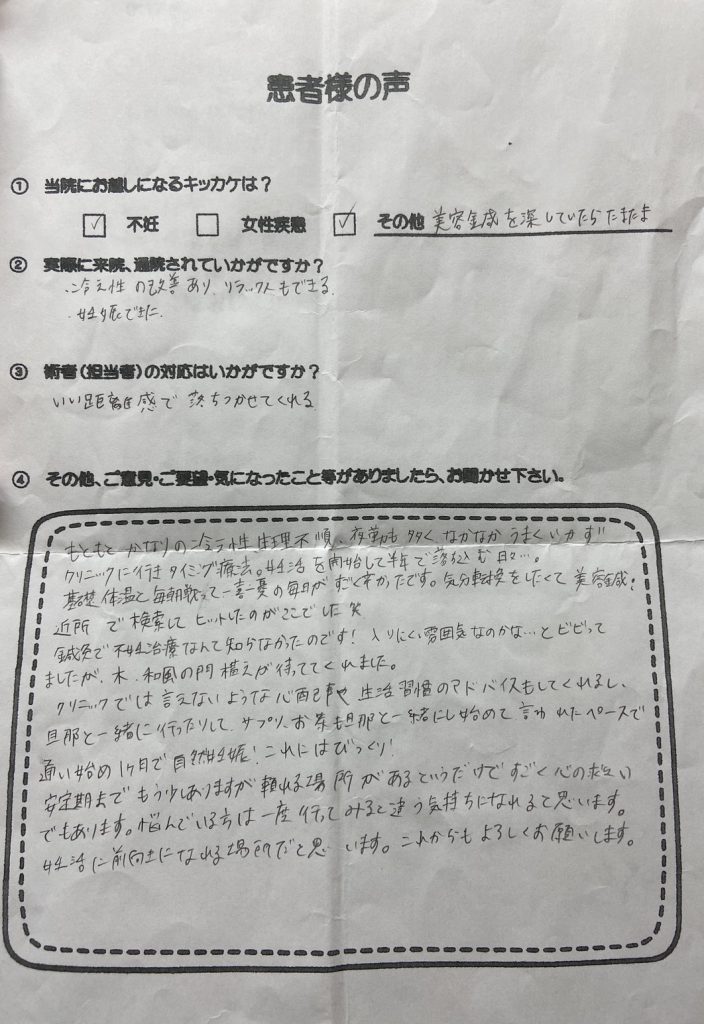 患者様の声
① 当院にお越しになるキッカケは？
☑ 不妊 ☐ 女性疾患 ☑ その他 美容鍼を探していたらたまたま
② 実際に来院、通院されていかがですか？
・冷え性の改善あり、リラックスもできる。
・妊娠できた。
③ 術者（担当者）の対応はいかがですか？
いい距離感で落ちつかせてくれる。
④ その他、ご意見・ご要望・気になったこと等がありましたら、お聞かせ下さい。
もともとかなりの冷え性、生理不順、夜勤も多く、なかなかうまくいかず!!
クリニックに行きタイミング療法。妊活を開始して半年で落ち込む日々…。
基礎体温と毎朝 一喜一憂の毎日がすごく辛かったです。気分転換をしたくて美容鍼：
近所 で検索してヒットしたのがここでした 笑
鍼灸で不妊治療なんて知らなかったのです！入りにくい雰囲気なのかな…とビビって
ましたが、木、和風の門構えが待っててくれました。
クリニックでは言えないような心配事や生活習慣のアドバイスもしてくれるし、
旦那と一緒に行ったりして、サプリ、お茶も旦那と一緒にし始めて言われたペースで
通い始め1ヶ月で自然妊娠！これにはびっくり！
安定期までもう少しありますが頼れる場所があるというだけですごく心の救い
でもあります。悩んでいる方は一度行ってみると違う気持ちになれると思います。
妊活に前向きになれる場所だと思います。これからもよろしくお願いします。